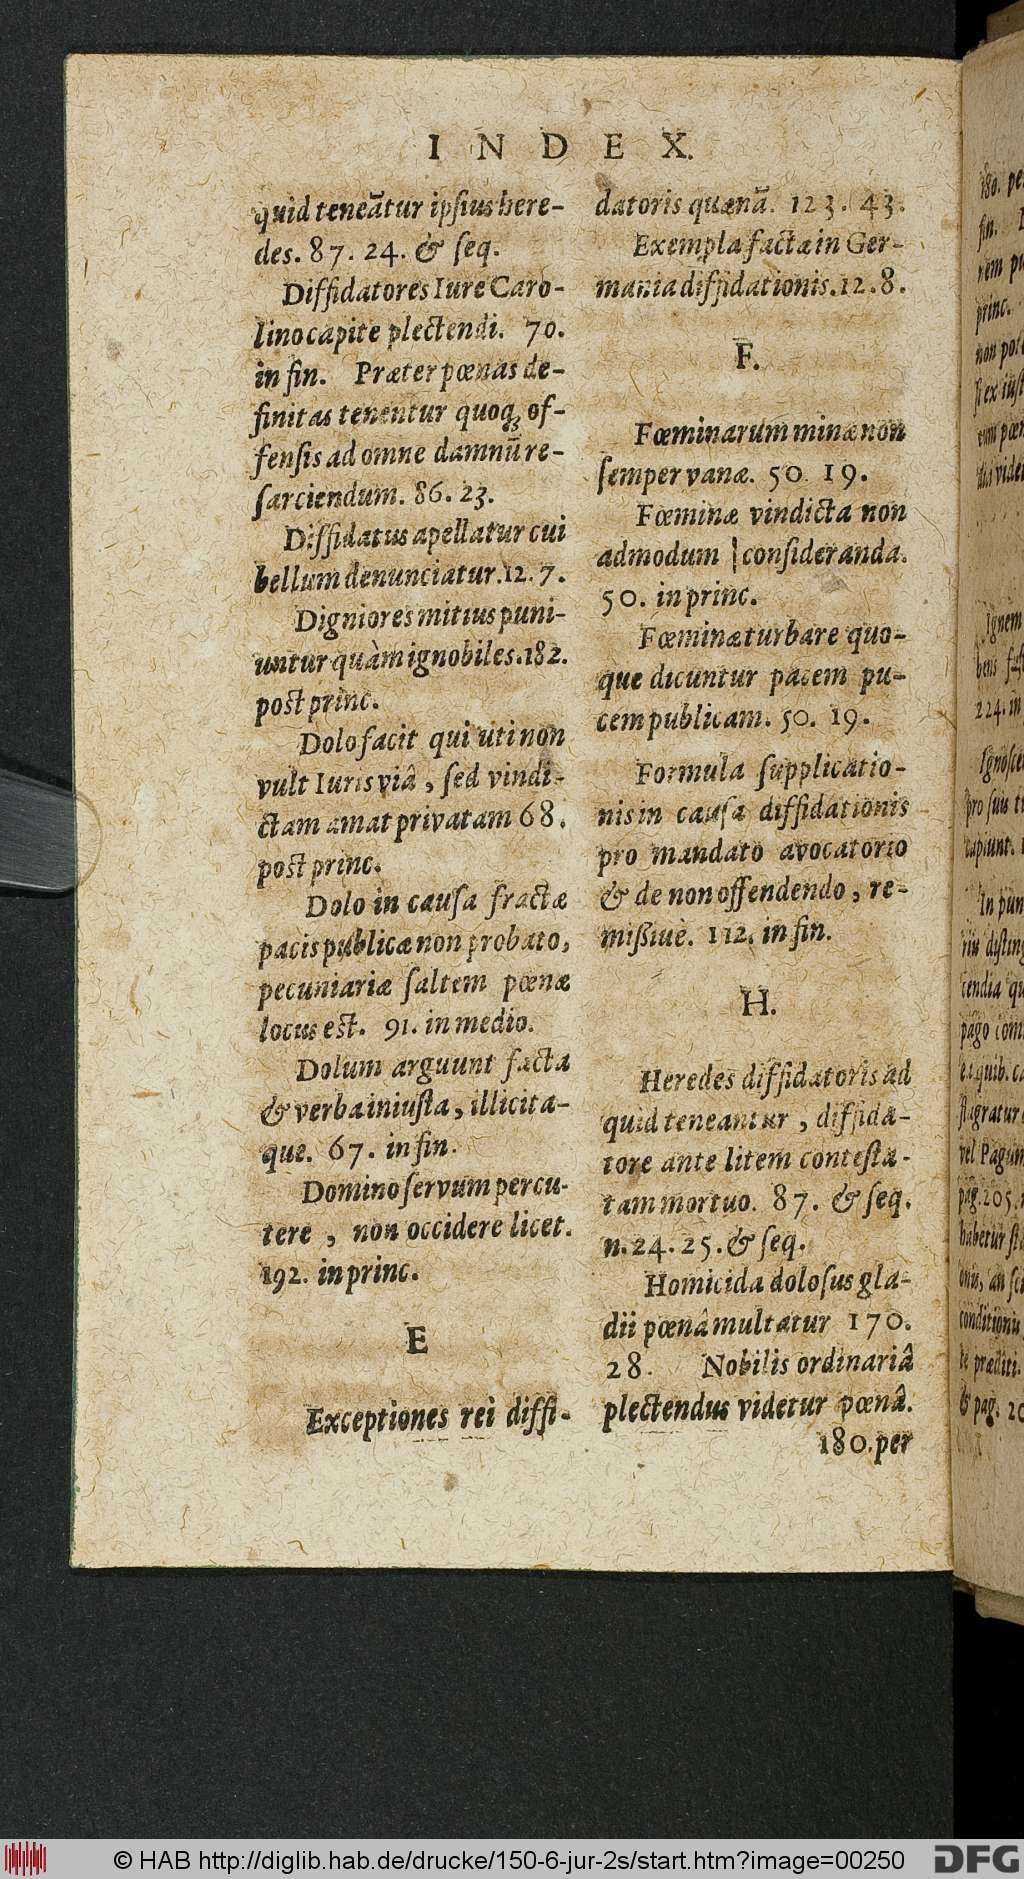 INDEX.
quid teneãtur ipſius here-
des. 87. 24. & ſeq.
Diffidatores Iure Caro-
lino capite plectendi. 70.
in fin. Præter pœnas de-
finitas tenentur quoq; of-
fenſis ad omne damnũ re-
ſarciendum. 86. 23.
Diffidatus apellatur cui
bellum denunciatur. 12. 7.
Digniores mitius puni-
untur quàm ignobiles. 182.
poſt princ.
Dolo facit qui uti non
vult Iuris viâ, ſed vindi-
ctam amat privatam 68.
poſt princ.
Dolo in cauſa fractæ
pacis publicæ non probato,
pecuniariæ ſaltem pœnæ
locus eſt. 91. in medio.
Dolum arguunt facta
& verba iniuſta, illicita-
que. 67. in fin.
Domino ſervum percu-
tere, non occidere licet.
192. in princ.
E
Exceptiones rei diffi-
datoris quænã. 123. 43.
Exempla factæ in Ger-
mania diffidationis. 12. 8.
F.
Fœminarum minæ non
ſemper vanæ. 50. 19.
Fœminæ vindicta non
admodum conſideranda.
50. in princ.
Fœminæ turbare quo-
que dicuntur pacem pu-
cem publicam. 50. 19.
Formula ſupplicatio-
nis in cauſa diffidationis
pro mandato avocatorio
& de non offendendo, re-
mißiuè. 112. in fin.
H.
Heredes diffidatoris ad
quid teneantur, diffida-
tore ante litem conteſta-
tam mortuo. 87. & ſeq.
n. 24. 25. & ſeq.
Homicida doloſus gla-
dii pœnâ multatur 170.
28. Nobilis ordinariâ
plectendus videtur pœnâ.
180. per
© HAB http://diglib.hab.de/drucke/150-6-jur-2s/start.htm?image=00250
DFG